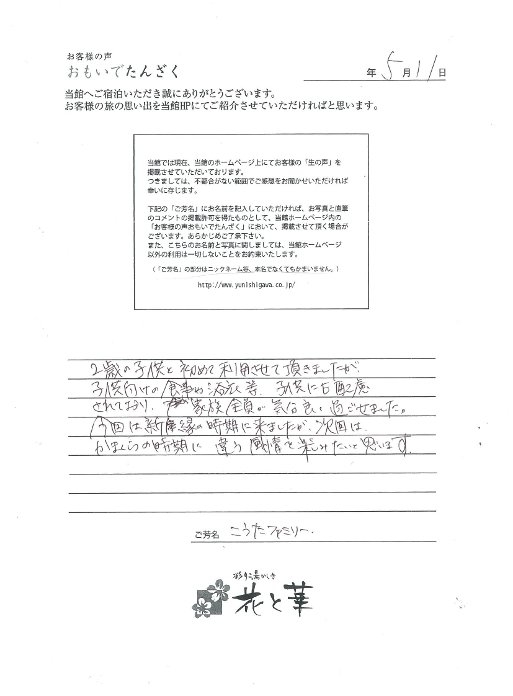 お客様の声
おもいでたんざく
年 5月11日
当館へご宿泊いただき誠にありがとうございます。
お客様の旅の思い出を当館HPにてご紹介させていただければと思います。
当館では現在、当館のホームページ上にてお客様の「生の声」を
掲載させていただいております。
つきましては、不都合がない範囲でご感想をお聞かせいただければ
幸いに存じます。
下記の「ご芳名」にお名前を記入していただければ、お写真と直筆
のコメントの掲載許可を得たものとして、当館ホームページ内の
「お客様の声おもいでたんざく」において、掲載させて頂く場合が
ございます。あらかじめご了承下さい。
また、こちらのお名前と写真に関しましては、当館ホームページ
以外の利用は一切しないことをお約束いたします。
(「ご芳名」の部分はニックネーム等、本名でなくてもかまいません。)
http://www.yunishigawa.co.jp/
2歳の子供と初めて利用させて頂きましたが、
子供向けの食事や浴衣等、子供にも配慮
されており、家族全員が気分良く過ごせました。
今回は新緑の時期に来ましたが、次回は
かまくらの時期に違う風情を楽しみたいと思います。
ご芳名 こうたファミリー
花と華